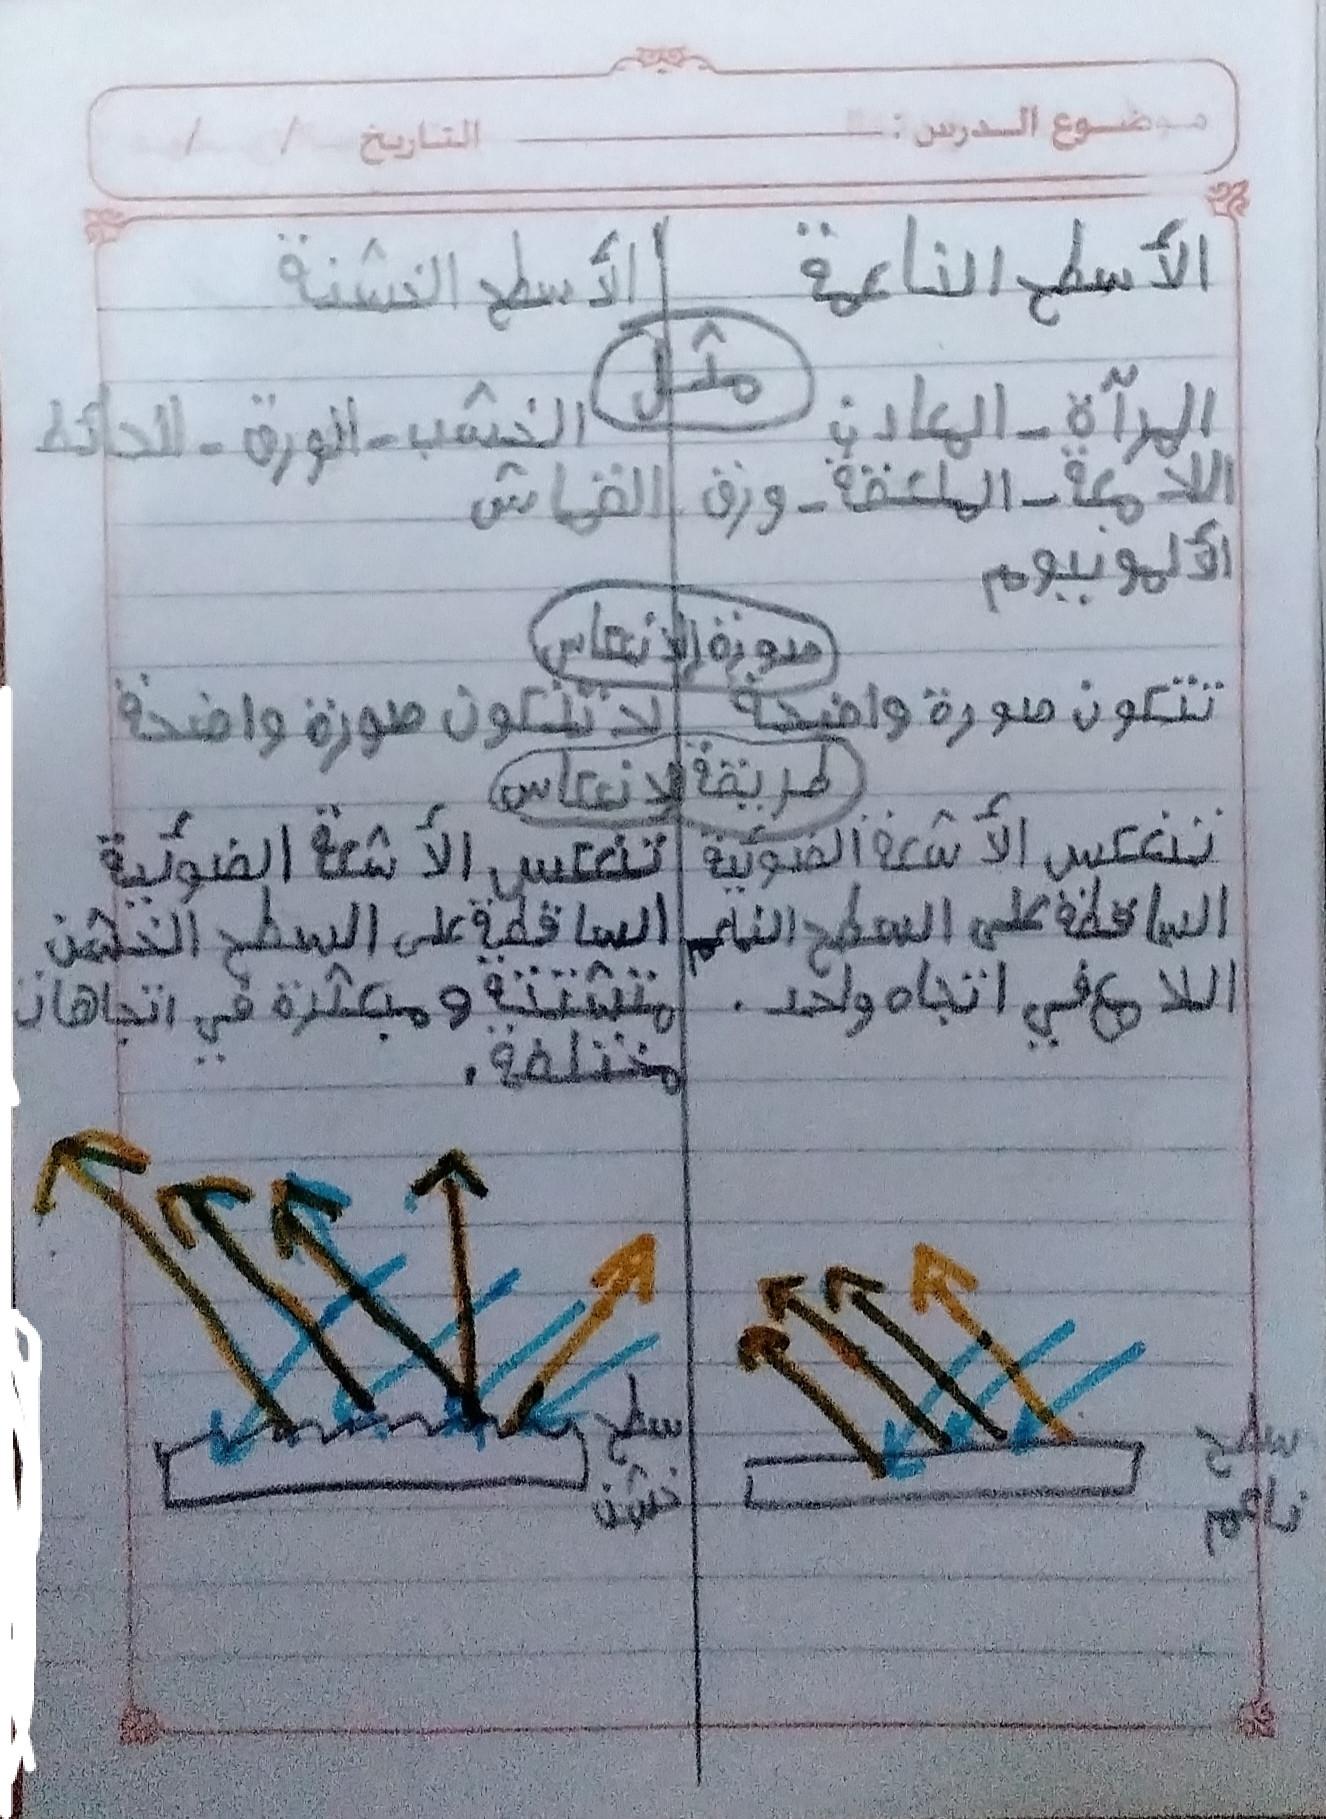 موضوع الدرس : التاريخ / /
الأسطح الناعمة
الأسطح الخشنة
مثل
المرآة - المعادن
اللامعة - الملعقة - ورق
الألمونيوم
الخشب - الورق - الحائط
القماش
صورة الانعكاس
تتكون صورة واضحة
لا تتكون صورة واضحة
طريقة الانعكاس
تنعكس الأشعة الضوئية
الساقطة على السطح الناعم
اللامع في اتجاه واحد .
تنعكس الأشعة الضوئية
الساقطة على السطح الخشن
متشتتة و مبعثرة في اتجاهات
مختلفة .
سطح
ناعم
سطح
خشن